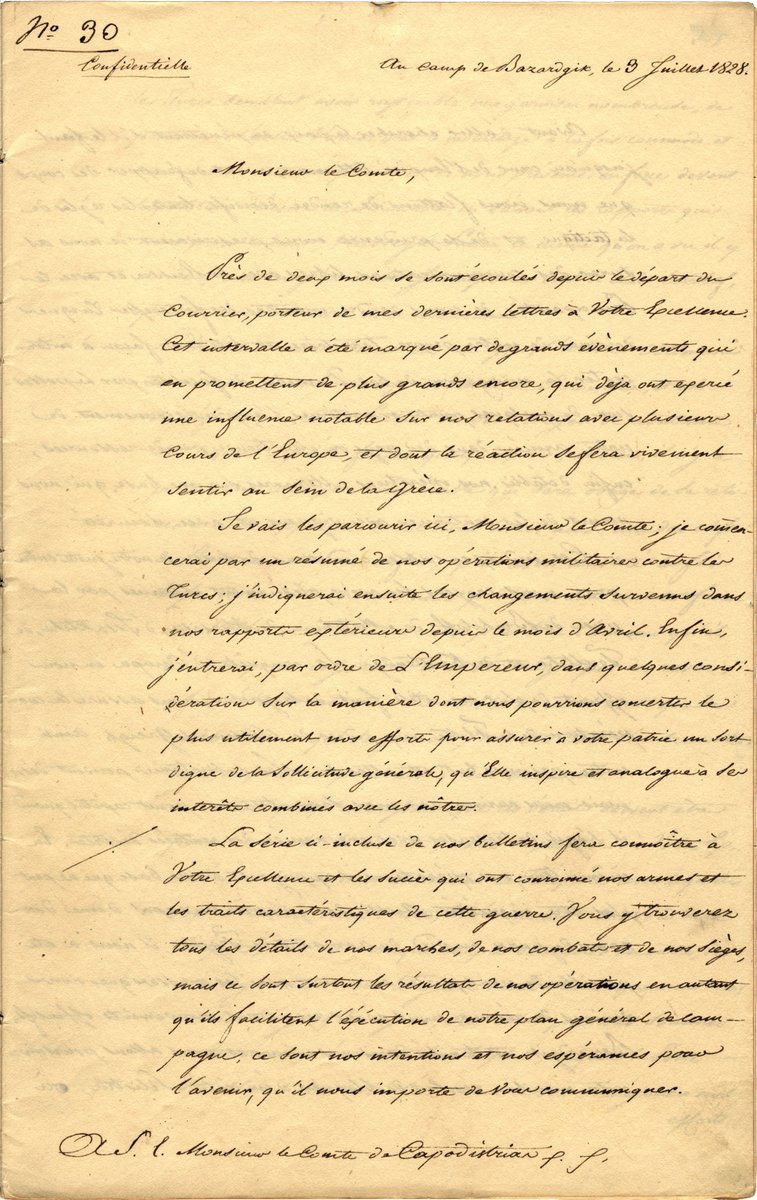 Nº 30
Confidentielle
Au camp de Bazardgik, le 3 Juillet 1828.
Monsieur le Comte,
Près de deux mois se sont écoulés depuis le départ du
Courrier, porteur de mes dernières lettres à Votre Excellence.
Cet intervalle a été marqué par de grands évènements qui
en promettent de plus grands encore, qui déja ont exercé
une influence notable sur nos relations avec plusieurs
Cours de l'Europe, et dont la réaction se fera vivement
sentir au sein de la Grèce.
Je vais les parcourir ici, Monsieur le Comte; je commen-
cerai par un résumé de nos opérations militaires contre les
Turcs; j'indiquerai ensuite les changements survenus dans
nos rapports extérieurs depuis le mois d'Avril. Enfin,
j'entrerai, par ordre de L'Empereur, dans quelques consi-
dérations sur la manière dont nous pourrions concerter le
plus utilement nos efforts pour assurer à votre patrie un sort
digne de la sollicitude générale, qu'Elle inspire et analogue à ses
interêts combinés avec les nôtres.
La série ci-incluse de nos bulletins fera connoître à
Votre Excellence et les succès qui ont couronné nos armes et
les traits caractéristiques de cette guerre. Vous y trouverez
tous les détails de nos marches, de nos combats et de nos sièges,
mais ce sont surtout les résultats de nos opérations en autant
qu'ils facilitent l'éxécution de notre plan général de cam-
pagne, ce sont nos intentions et nos espérances pour
l'avenir, qu'il nous importe de vous communiquer.
A S. E. Monsieur le Comte de Capodistrias